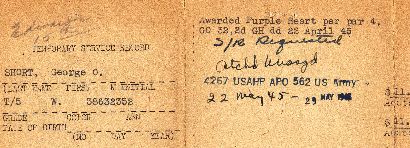 TEMPORARY SERVICE RECORD
SHORT, George O.
LAST NAME FIRST M INITIAL
T/5 W. 38632352
GRADE COLOR ASN
DATE OF BIRTH
(MO DAY YEAR)
Awarded Purple Heart par par 4,
GO 32, 2d GH dd 22 April 45
S/R Requested
atchd unasgd
4267 USAHP APO 562 US Army
22 May 45 - 29 MAY